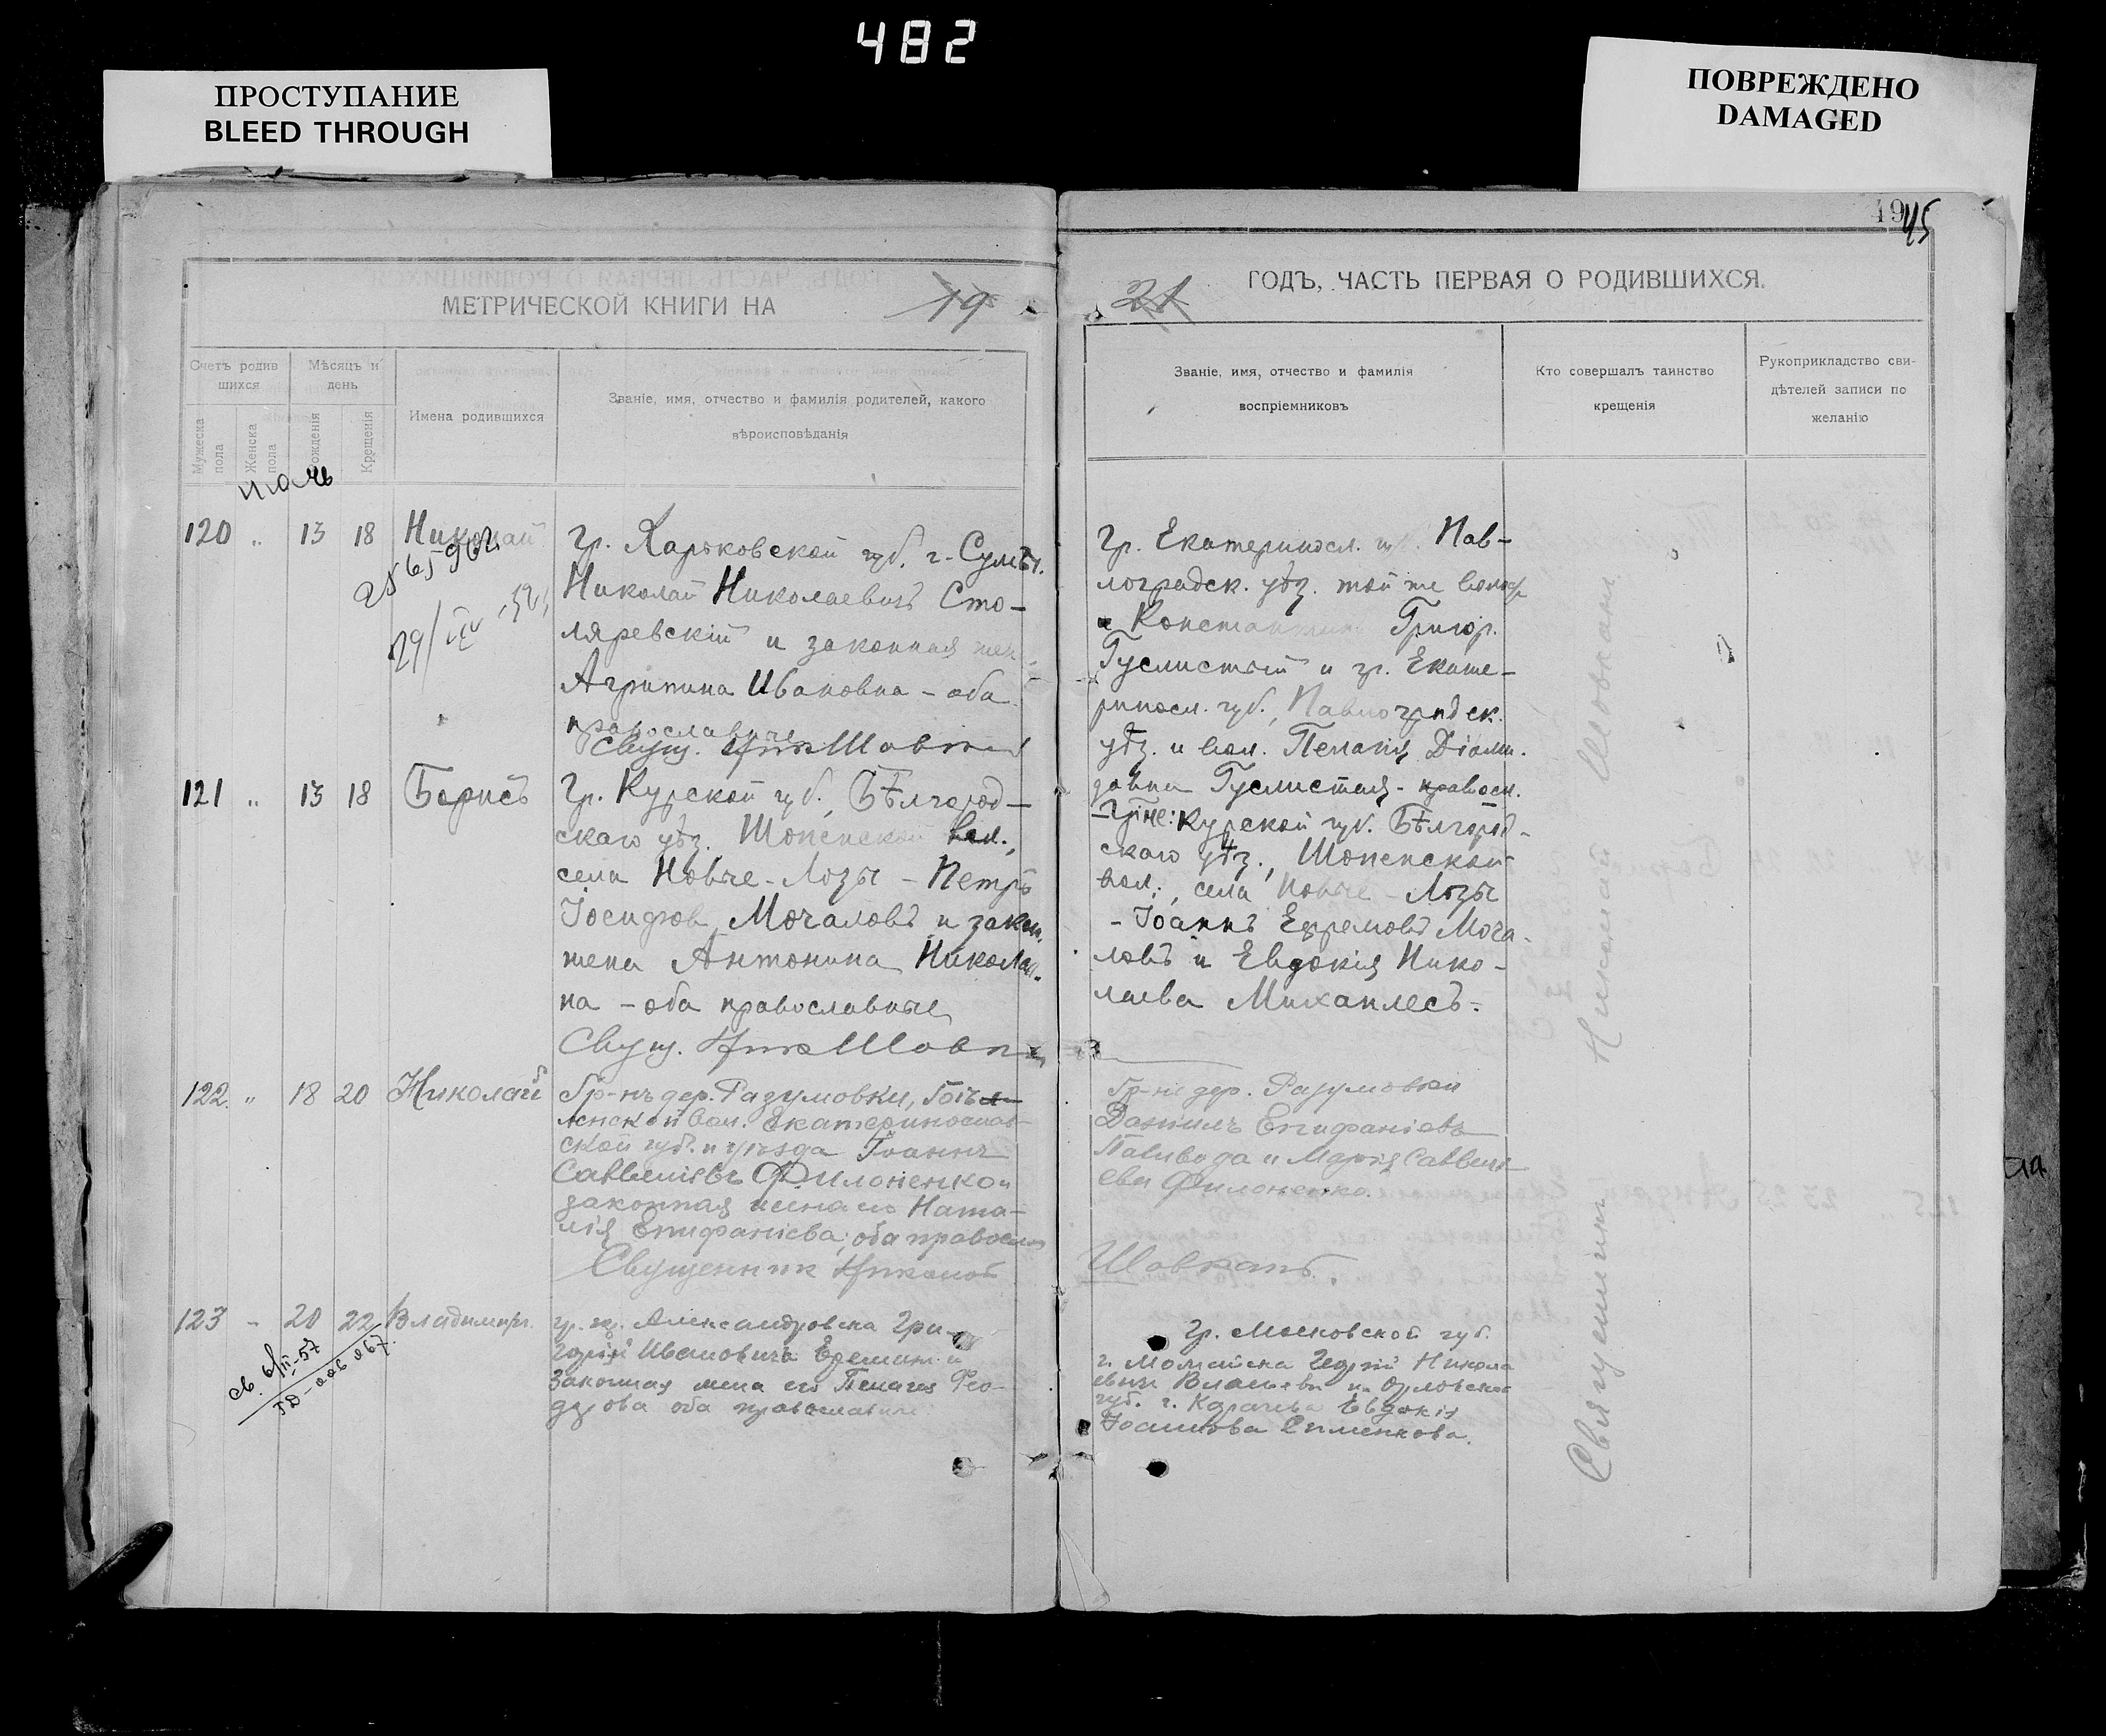 482
ПРОСТУПАНИЕ
BLEED THROUGH
ПОВРЕЖДЕНО
DAMAGED
49 45
МЕТРИЧЕСКОЙ КНИГИ НА 19
21 ГОДЪ, ЧАСТЬ ПЕРВАЯ О РОДИВШИХСЯ.
Счетъ родив
шихся
Мужеска
пола
Женска
пола
Мѣсяцъ и
день
Рожденія
Крещенія
Имена родившихся
Званіе, имя, отчество и фамилія родителей, какого
вѣроисповѣданія
Званіе, имя, отчество и фамилія
воспріемниковъ
Кто совершалъ таинство
крещенія
Рукоприкладство сви-
дѣтелей записи по
желанію
120 „ 13 18 Николай
29/
гр. Харьковской губ. г. Сумы.
Николай Николаевичъ Сто-
ляревскій и законная жен
Агрипина Ивановна - оба
православные
Свущ. Ник Шовкан
гр. Екатериносл. губ. Пав-
лоградск. уѣз. той же волос
и Константин Григор.
Гуслистый и гр. Екате-
риносл. губ., Павлоградск.
уѣз. и вол. Пелагія Діоми-
довна Гуслистая - правосл.
121 „ 13 18 Борисъ
гр. Курской губ., Бѣлгород-
скаго уѣз. Шопенской вол.,
села Новые-Лозы - Петръ
Іосифов Мочаловъ и закон.
жена Антонина Николаев.
на - оба православные
Свущ. Ник Шовкан
Гр-не: Курской губ. Бѣлгород-
скаго уѣз., Шопенской
вол., села Новые-Лозы
- Іоаннъ Ефремовъ Моча-
ловъ и Евдокія Нико-
лаева
122. „ 18 20 Николай
Гр-нъ дер. Разумовки,
ленской вол. Екатеринослав-
ской губ. и уѣзда Іоаннъ
Саввеліевъ Филоненко и
законная жена его Ната-
лія Епифаніева, оба правосл
Свущенник Николай
Гр-не дер. Разумовки
Даніилъ Епифаніевъ
Паливода и Марія Саввелі-
ева Филоненко.
Шовканъ.
123 - 20 22 Владимиръ.
св. 6/II-57
гр. гр. Александровска Гри-
горій Ивановичъ Еремин и
законная жена его Пелагея Фео-
дорова оба православные
Гр. Московской губ.
г. Можайска Георгій Никола
евич и Орловской
губ. г. Карачева Евдокія
Іоаннова Сименкова.
Священникъ Николай Шовканъ